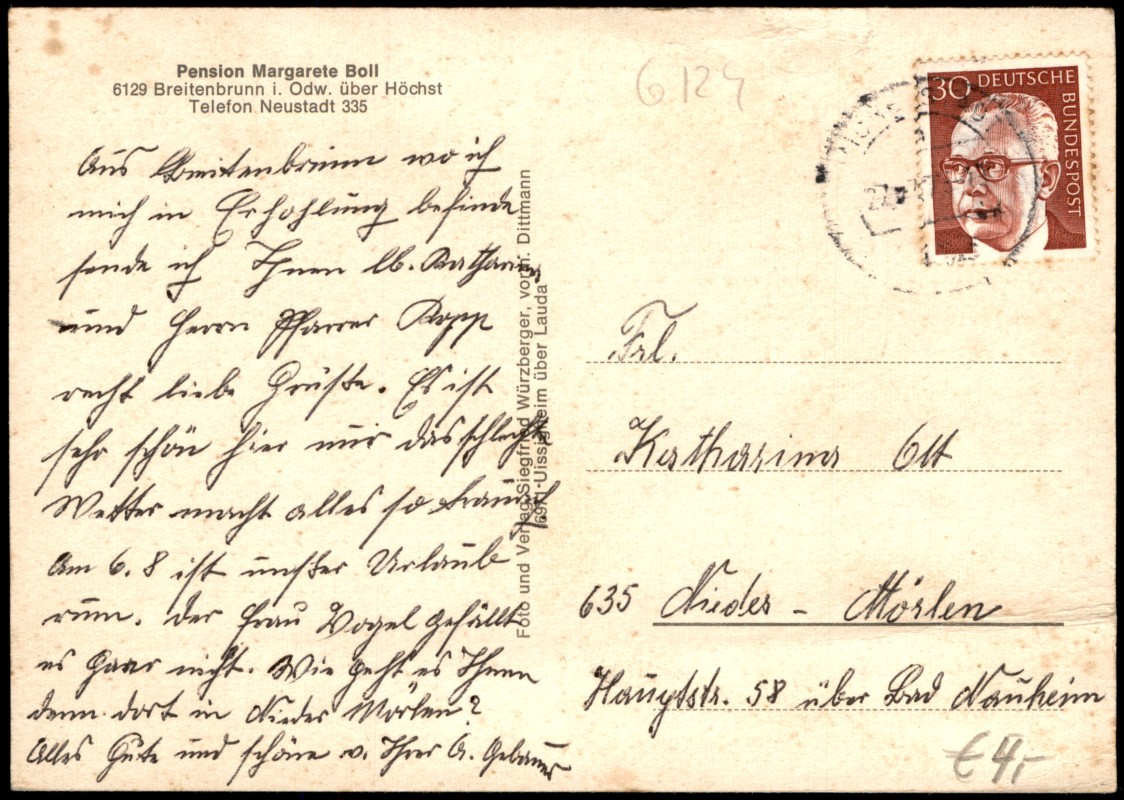 Pension Margarete Boll
6129 Breitenbrunn i. Odw. über Höchst
Telefon Neustadt 335
6124
30 DEUTSCHE
BUNDESPOST
Aus Breitenbrunn wo ich
mich in Erhohlung befinde
sende ich Ihnen lb. Katharina
und Herrn Pfarrer Kopp
recht liebe Grüße. Es ist
sehr schön hier nur das schlechte
Wetter macht alles so traurig.
Am 6. 8 ist unser Urlaub
rum. der Frau Vogel gefällt
es gaar nicht. Wie geht es Ihnen
denn dort in Nieder Mörlen?
Alles Gute und schöne v. Ihrer A. Gebauer
Foto und Verlag Siegfried Würzberger, vorm. Dittmann
6971 Uissigheim über Lauda
Frl.
Katharina Ott
635 Nieder - Mörlen
Hauptstr. 58 über Bad Nauheim
€ 4,-